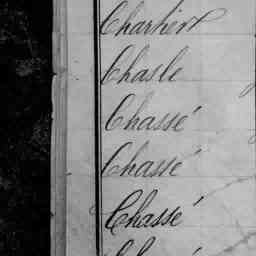 Chartier
Chasle
Chassé
Chassé
Chassé